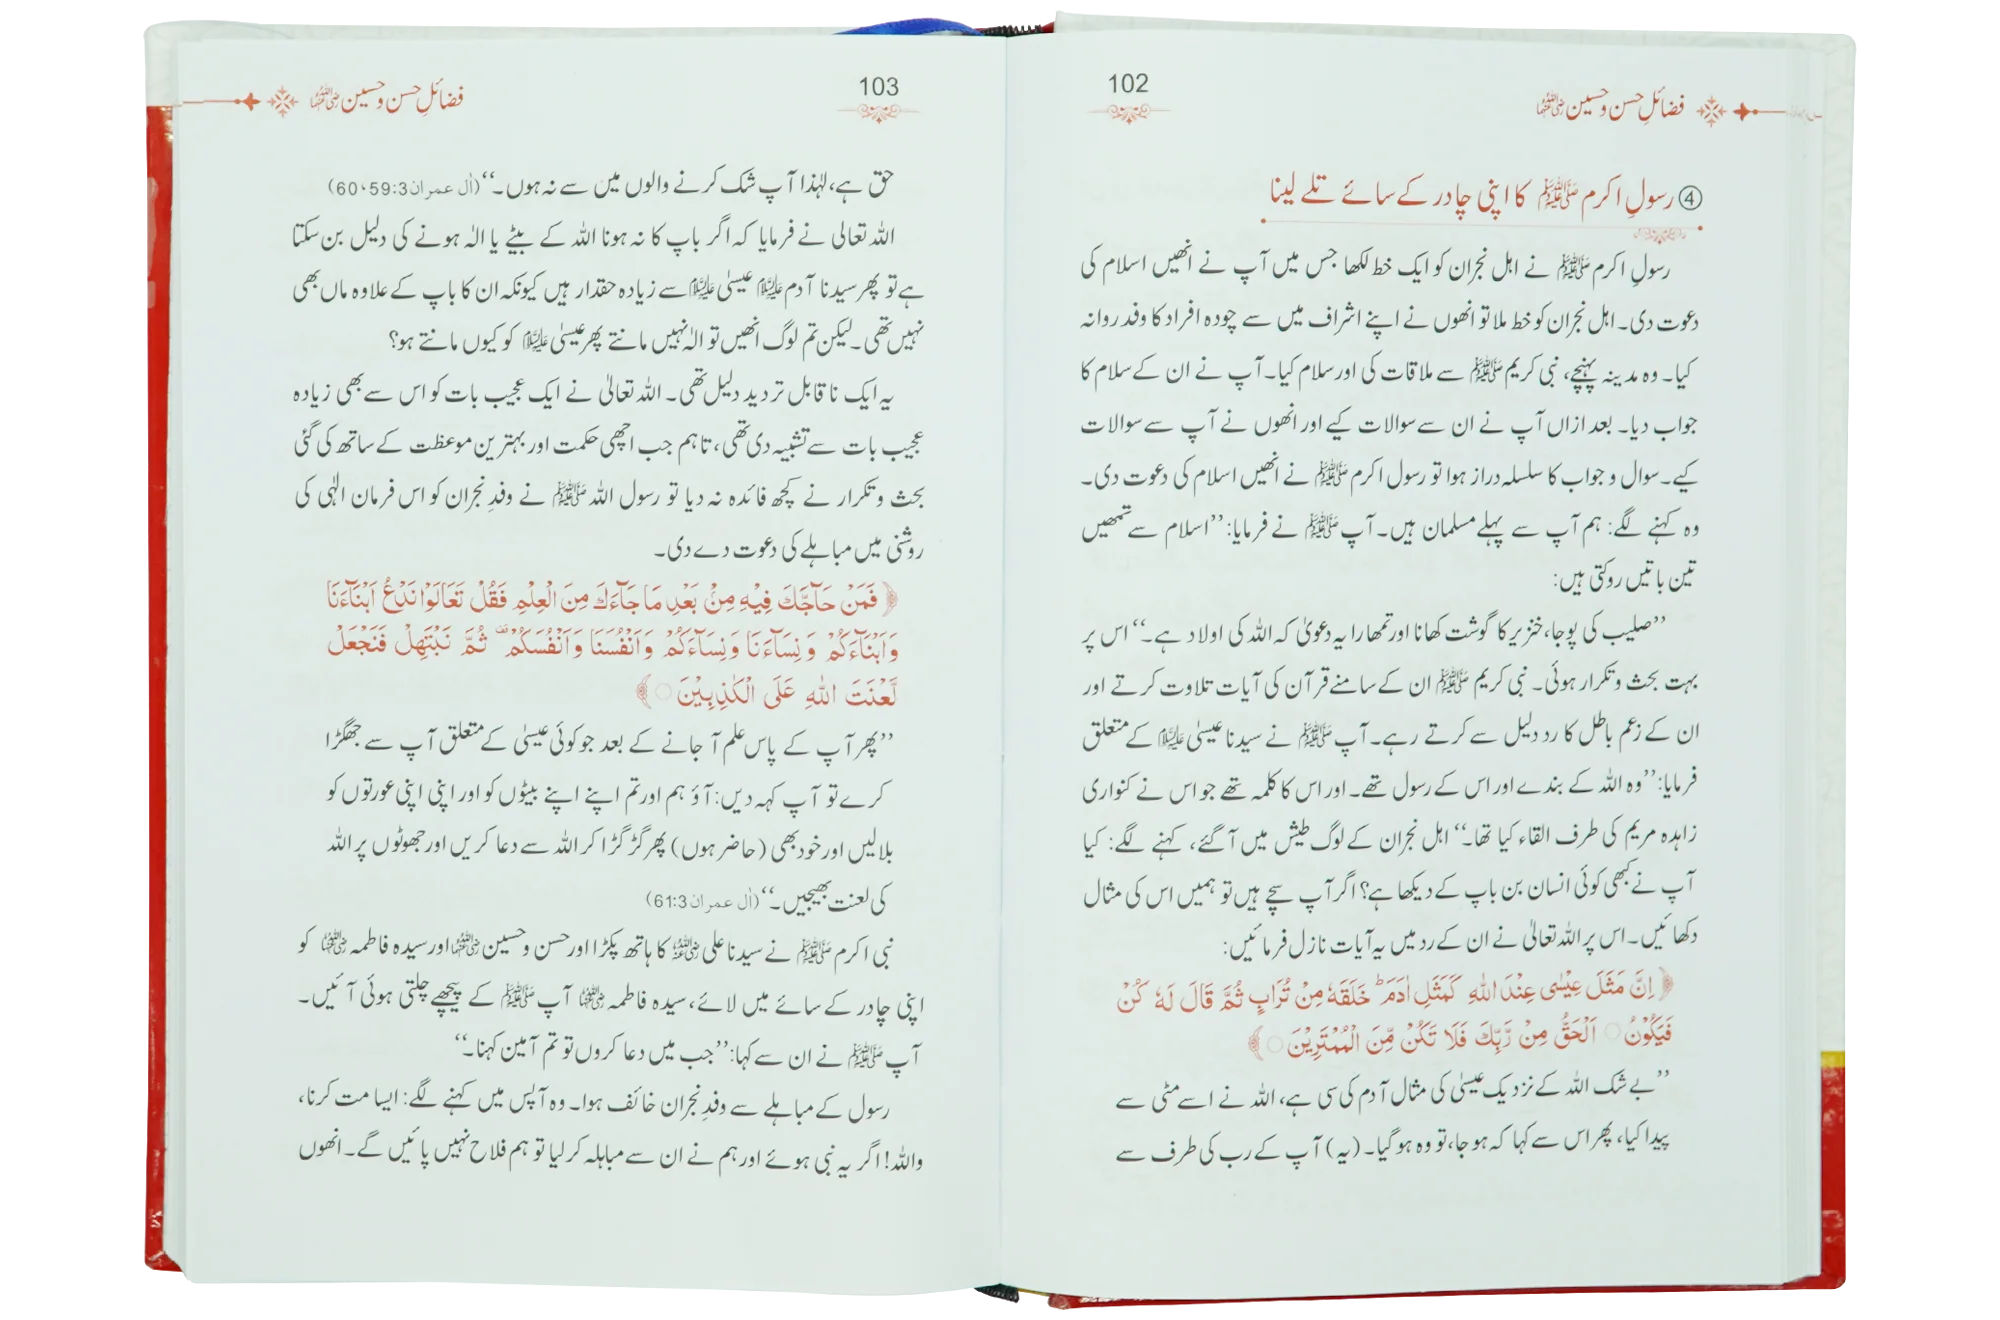 فضائلِ حسن و حسین رضی اللہ عنہما
102
④ رسولِ اکرم ﷺ کا اپنی چادر کے سائے تلے لینا
رسولِ اکرم ﷺ نے اہل نجران کو ایک خط لکھا جس میں آپ نے انھیں اسلام کی
دعوت دی۔ اہل نجران کو خط ملا تو انھوں نے اپنے اشراف میں سے چودہ افراد کا وفد روانہ
کیا۔ وہ مدینہ پہنچے، نبی کریم ﷺ سے ملاقات کی اور سلام کیا۔ آپ نے ان کے سلام کا
جواب دیا۔ بعد ازاں آپ نے ان سے سوالات کیے اور انھوں نے آپ سے سوالات
کیے۔ سوال و جواب کا سلسلہ دراز ہوا تو رسول اکرم ﷺ نے انھیں اسلام کی دعوت دی۔
وہ کہنے لگے: ہم آپ سے پہلے مسلمان ہیں۔ آپ ﷺ نے فرمایا: ’’اسلام سے تمھیں
تین باتیں روکتی ہیں:
’’صلیب کی پوجا، خنزیر کا گوشت کھانا اور تمھارا یہ دعویٰ کہ اللہ کی اولاد ہے۔‘‘ اس پر
بہت بحث و تکرار ہوئی۔ نبی کریم ﷺ ان کے سامنے قرآن کی آیات تلاوت کرتے اور
ان کے زعم باطل کا رد دلیل سے کرتے رہے۔ آپ ﷺ نے سیدنا عیسیٰ علیہ السلام کے متعلق
فرمایا: ’’وہ اللہ کے بندے اور اس کے رسول تھے۔ اور اس کا کلمہ تھے جو اس نے کنواری
زاہدہ مریم کی طرف القاء کیا تھا۔‘‘ اہل نجران کے لوگ طیش میں آگئے، کہنے لگے: کیا
آپ نے کبھی کوئی انسان بن باپ کے دیکھا ہے؟ اگر آپ سچے ہیں تو ہمیں اس کی مثال
دکھائیں۔ اس پر اللہ تعالیٰ نے ان کے رد میں یہ آیات نازل فرمائیں:
﴿ اِنَّ مَثَلَ عِیْسٰی عِنْدَ اللّٰهِ كَمَثَلِ اٰدَمَ ؕ خَلَقَهٗ مِنْ تُرَابٍ ثُمَّ قَالَ لَهٗ كُنْ
فَیَكُوْنُ ۝ اَلْحَقُّ مِنْ رَّبِّكَ فَلَا تَكُنْ مِّنَ الْمُمْتَرِیْنَ ۝ ﴾
’’بے شک اللہ کے نزدیک عیسیٰ کی مثال آدم کی سی ہے، اللہ نے اسے مٹی سے
پیدا کیا، پھر اس سے کہا کہ ہو جا، تو وہ ہو گیا۔ (یہ) آپ کے رب کی طرف سے
103
فضائلِ حسن و حسین رضی اللہ عنہما
حق ہے، لہٰذا آپ شک کرنے والوں میں سے نہ ہوں۔‘‘ (اٰل عمران 3:59، 60)
اللہ تعالی نے فرمایا کہ اگر باپ کا نہ ہونا اللہ کے بیٹے یا الٰہ ہونے کی دلیل بن سکتا
ہے تو پھر سیدنا آدم علیہ السلام عیسیٰ علیہ السلام سے زیادہ حقدار ہیں کیونکہ ان کا باپ کے علاوہ ماں بھی
نہیں تھی۔ لیکن تم لوگ انھیں تو الٰہ نہیں مانتے پھر عیسیٰ علیہ السلام کو کیوں مانتے ہو؟
یہ ایک ناقابل تردید دلیل تھی۔ اللہ تعالیٰ نے ایک عجیب بات کو اس سے بھی زیادہ
عجیب بات سے تشبیہ دی تھی، تاہم جب اچھی حکمت اور بہترین موعظت کے ساتھ کی گئی
بحث و تکرار نے کچھ فائدہ نہ دیا تو رسول اللہ ﷺ نے وفدِ نجران کو اس فرمان الٰہی کی
روشنی میں مباہلے کی دعوت دے دی۔
﴿ فَمَنْ حَآجَّكَ فِیْهِ مِنْۢ بَعْدِ مَا جَآءَكَ مِنَ الْعِلْمِ فَقُلْ تَعَالَوْا نَدْعُ اَبْنَآءَنَا
وَاَبْنَآءَكُمْ وَنِسَآءَنَا وَنِسَآءَكُمْ وَاَنْفُسَنَا وَاَنْفُسَكُمْ ۫ ثُمَّ نَبْتَهِلْ فَنَجْعَلْ
لَّعْنَتَ اللّٰهِ عَلَی الْكٰذِبِیْنَ ۝ ﴾
’’پھر آپ کے پاس علم آ جانے کے بعد جو کوئی عیسیٰ کے متعلق آپ سے جھگڑا
کرے تو آپ کہہ دیں: آؤ ہم اور تم اپنے اپنے بیٹوں کو اور اپنی اپنی عورتوں کو
بلالیں اور خود بھی (حاضر ہوں) پھر گڑ گڑا کر اللہ سے دعا کریں اور جھوٹوں پر اللہ
کی لعنت بھیجیں۔‘‘ (اٰل عمران 3:61)
نبی اکرم ﷺ نے سیدنا علی رضی اللہ عنہ کا ہاتھ پکڑا اور حسن و حسین رضی اللہ عنہما اور سیدہ فاطمہ رضی اللہ عنہا کو
اپنی چادر کے سائے میں لائے، سیدہ فاطمہ رضی اللہ عنہا آپ ﷺ کے پیچھے چلتی ہوئی آئیں۔
آپ ﷺ نے ان سے کہا: ’’جب میں دعا کروں تو تم آمین کہنا۔‘‘
رسول کے مباہلے سے وفدِ نجران خائف ہوا۔ وہ آپس میں کہنے لگے: ایسا مت کرنا،
واللہ! اگر یہ نبی ہوئے اور ہم نے ان سے مباہلہ کر لیا تو ہم فلاح نہیں پائیں گے۔ انھوں